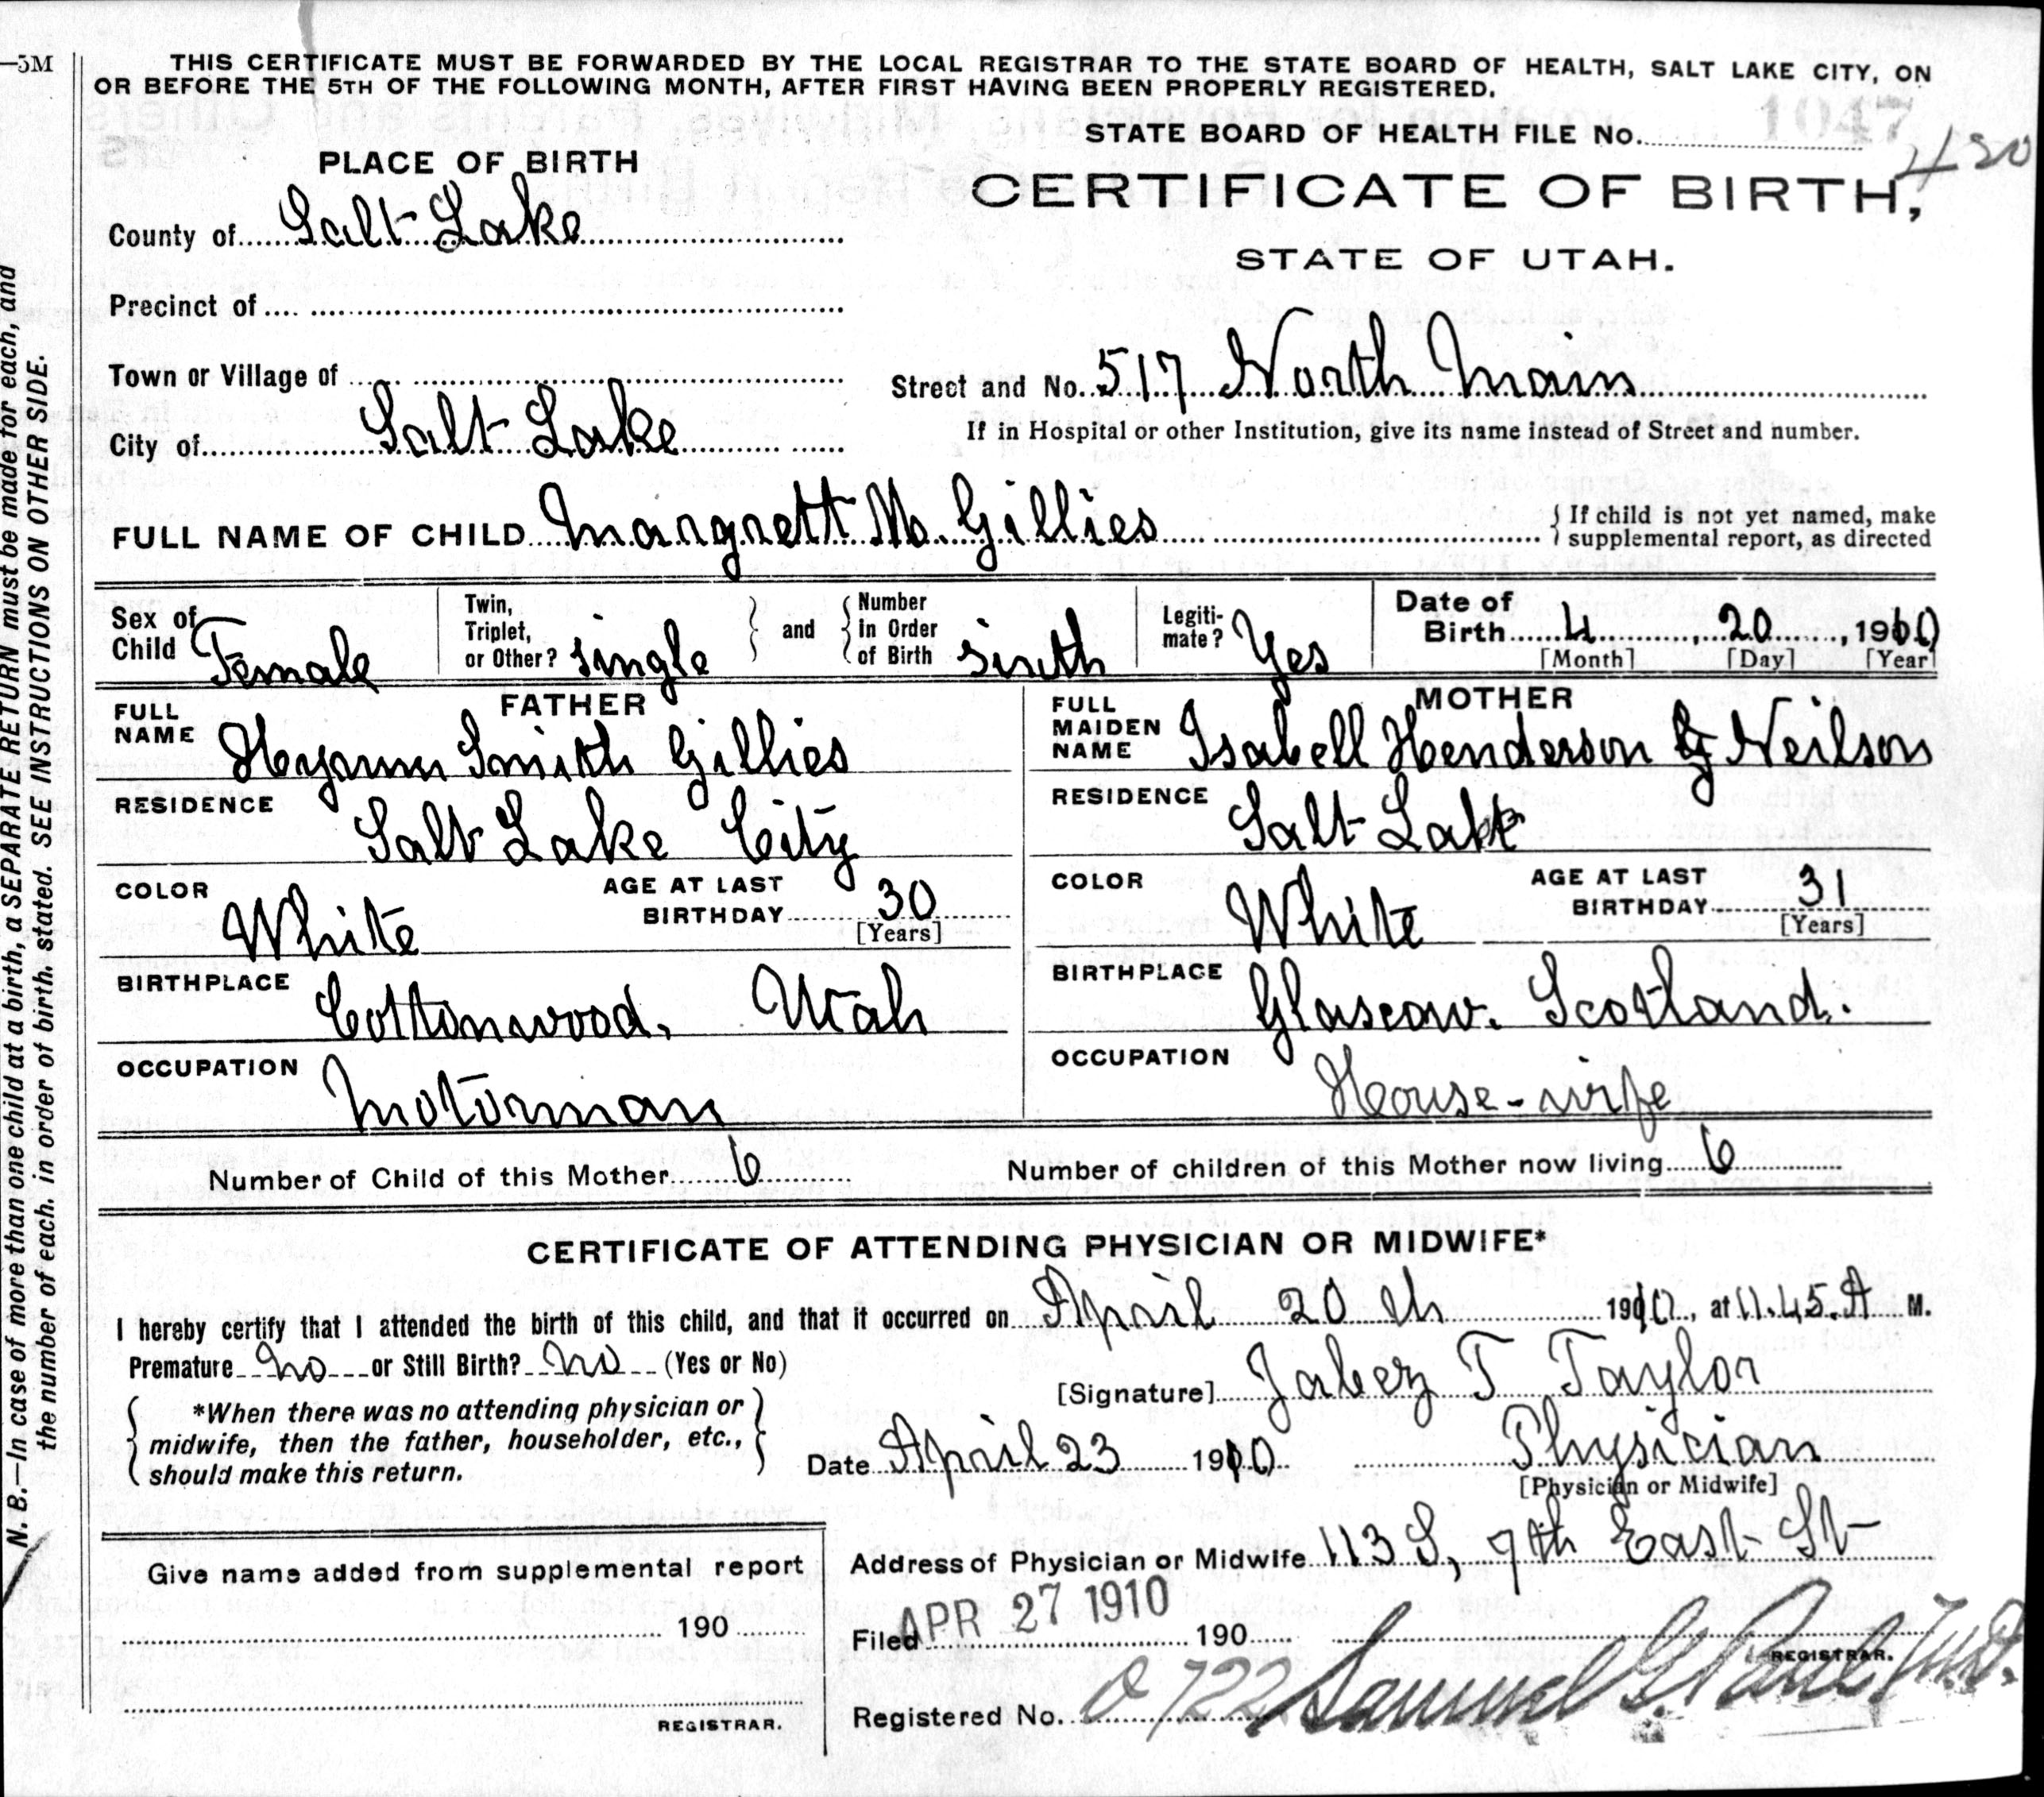 —5M
THIS CERTIFICATE MUST BE FORWARDED BY THE LOCAL REGISTRAR TO THE STATE BOARD OF HEALTH, SALT LAKE CITY, ON
OR BEFORE THE 5TH OF THE FOLLOWING MONTH, AFTER FIRST HAVING BEEN PROPERLY REGISTERED.
STATE BOARD OF HEALTH FILE No. 1047
480
PLACE OF BIRTH
CERTIFICATE OF BIRTH,
STATE OF UTAH.
County of Salt Lake
Precinct of
Town or Village of
Street and No. 517 North Main
City of Salt Lake
If in Hospital or other Institution, give its name instead of Street and number.
FULL NAME OF CHILD Margrett M. Gillies
{ If child is not yet named, make
supplemental report, as directed
Sex of Child Female
Twin, Triplet, or Other? single } and { Number in Order of Birth sixth
Legiti-mate? Yes
Date of Birth 4, 20, 1910
[Month] [Day] [Year]
FATHER
FULL NAME Hyrum Smith Gillies
MOTHER
FULL MAIDEN NAME Isabell Henderson G Neilson
RESIDENCE Salt Lake City
RESIDENCE Salt Lake
COLOR White AGE AT LAST BIRTHDAY 30 [Years]
COLOR White AGE AT LAST BIRTHDAY 31 [Years]
BIRTHPLACE Cottonwood, Utah
BIRTHPLACE Glascow. Scotland.
OCCUPATION Motorman
OCCUPATION House-wife
Number of Child of this Mother 6
Number of children of this Mother now living 6
CERTIFICATE OF ATTENDING PHYSICIAN OR MIDWIFE*
I hereby certify that I attended the birth of this child, and that it occurred on April 20 th 1910, at 11.45.A M.
Premature no or Still Birth? no (Yes or No)
[Signature] Jabez T Taylor
{ *When there was no attending physician or
midwife, then the father, householder, etc.,
should make this return. }
Date April 23 1910
Physician
[Physician or Midwife]
Give name added from supplemental report
190
REGISTRAR.
Address of Physician or Midwife 113 S, 9th East St
Filed APR 27 1910 190
Samuel G. Paul M.D.
REGISTRAR.
Registered No. 722
N. B.—In case of more than one child at a birth, a SEPARATE RETURN must be made for each, and
the number of each. in order of birth. stated. SEE INSTRUCTIONS ON OTHER SIDE.